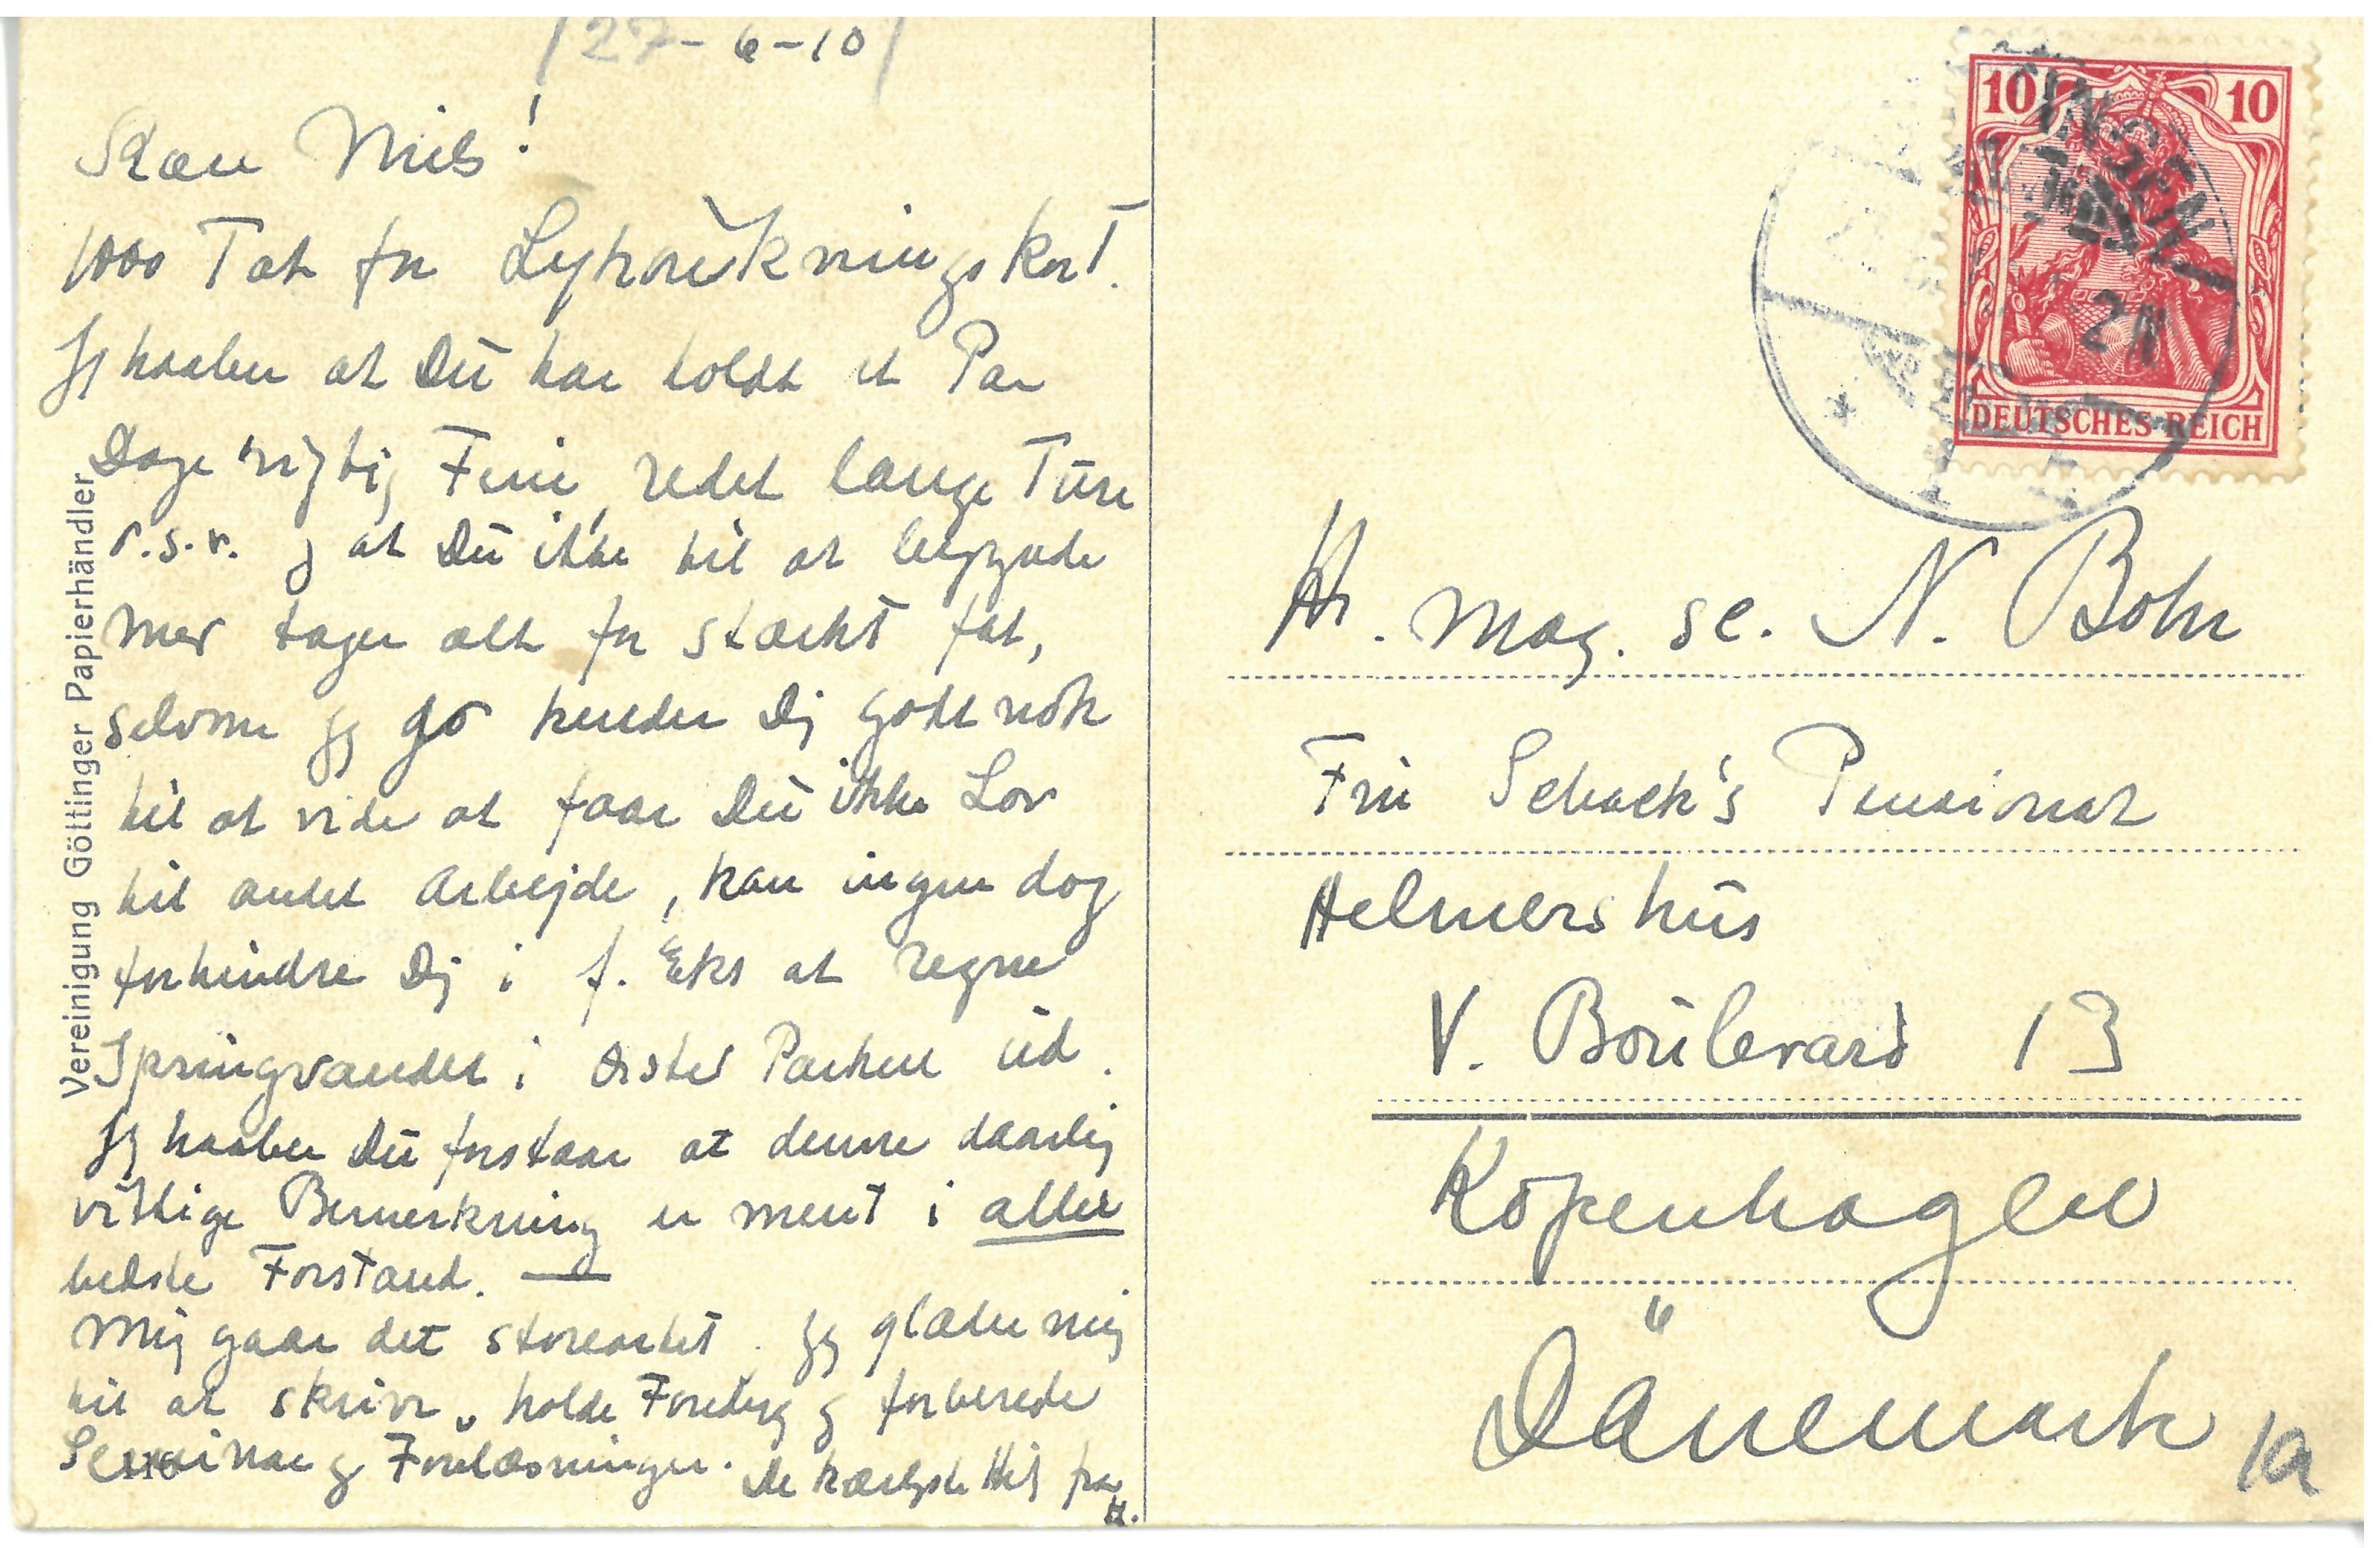 27-6-10
Kære Niels!
1000 Tak for Lykønskningskort.
Jeg haaber at Du har holdt et Par
Dage rigtig Ferie, redet lange Ture
o.s.v. og at Du ikke til at begynde
med tager alt for stærkt fat,
selvom jeg jo kender Dig godt nok
til at vide at faar Du ikke Lov
til andet Arbejde, kan ingen dog
forhindre Dig i f. Eks at regne
Springvandet i Ørsted Parken ud.
Jeg haaber Du forstaar at denne daarlig
vittige Bemerkning er ment i aller
bedste Forstand. —
Mig gaar det storeartet. Jeg glæder mig
til at skrive, holde Foredrag og forberede
Seminar og Forelæsninger. De kærligste Hils fra
H.
Vereinigung Göttinger Papierhändler
10 10
DEUTSCHES REICH
2N
Hr. mag. sc. N. Bohr
Fru Schack's Pensionat
Helmershus
V. Boulevard 13
Kopenhagen
Dänemark